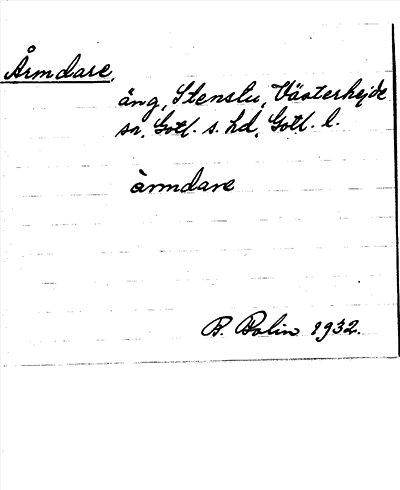 Årmdare,
äng, Stenstu, Västerhejde
sn, Gotl. s. hd, Gotl. l.
àrmdare
B. Bolin 1932.